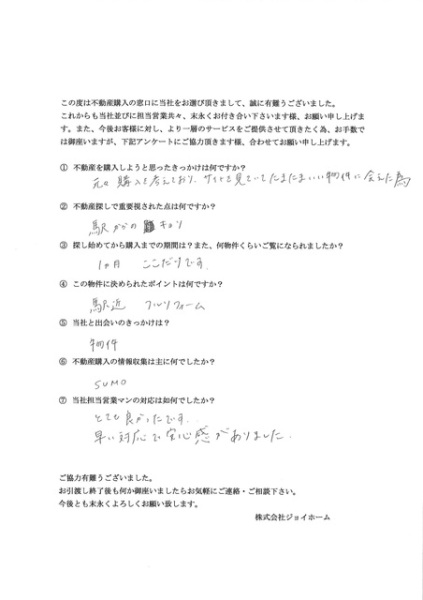 この度は不動産購入の窓口に当社をお選び頂きまして、誠に有難うございました。
これからも当社並びに担当営業共々、末永くお付き合い下さいます様、お願い申し上げま
す。また、今後お客様に対し、より一層のサービスをご提供させて頂きたく為、お手数で
は御座いますが、下記アンケートにご協力頂きます様、合わせてお願い申し上げます。
① 不動産を購入しようと思ったきっかけは何ですか？
元々購入を考えており、サイトを見ていてたまたまいい物件に会えた為
② 不動産探しで重要視された点は何ですか？
駅からの キョリ
③ 探し始めてから購入までの期間は？また、何物件くらいご覧になられましたか？
1ヶ月 ここだけです。
④ この物件に決められたポイントは何ですか？
駅近 フルリフォーム
⑤ 当社と出会いのきっかけは？
物件
⑥ 不動産購入の情報収集は主に何でしたか？
SUMO
⑦ 当社担当営業マンの対応は如何でしたか？
とても良かったです。
早い対応で安心感がありました。
ご協力有難うございました。
お引渡し終了後も何か御座いましたらお気軽にご連絡・ご相談下さい。
今後とも末永くよろしくお願い致します。
株式会社ジョイホーム